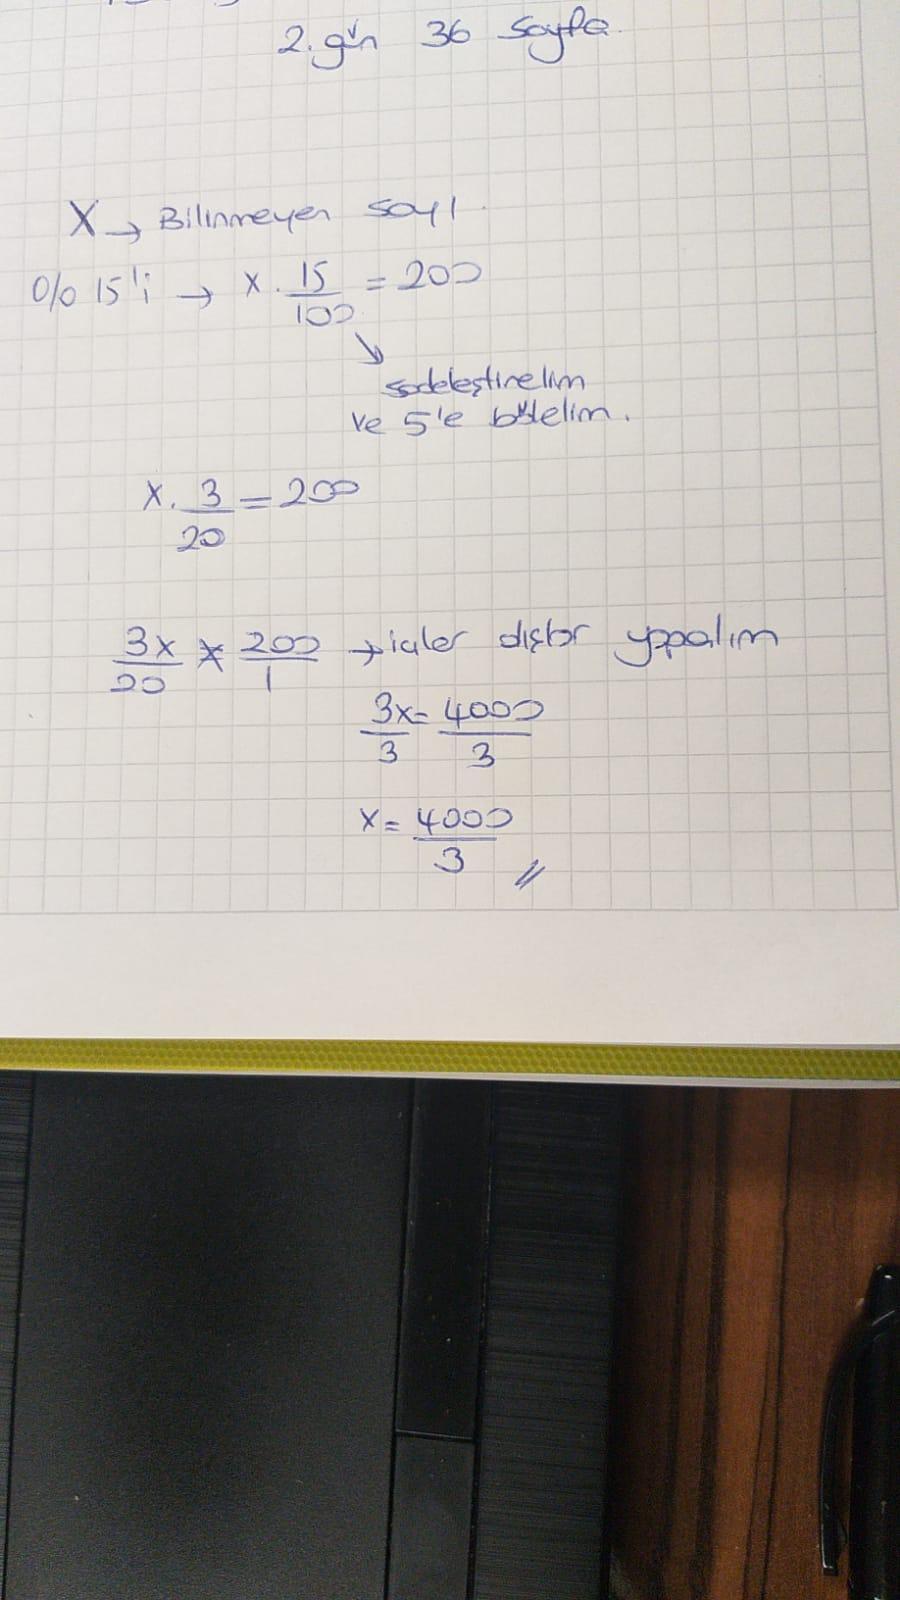 2. gün 36 sayfa.
X → Bilinmeyen sayı.
%15'i → x . 15/100 = 200
sadeleştirelim
ve 5'e bölelim.
x . 3/20 = 200
3x/20 × 200/1 → içler dışlar yapalım
3x/3 = 4000/3
x = 4000/3 //